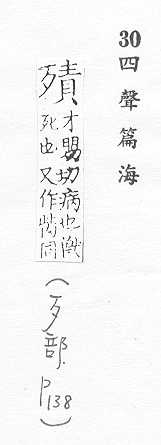 30 四聲篇海
才 切病也獸
死也又作 同
(歹部 P138)